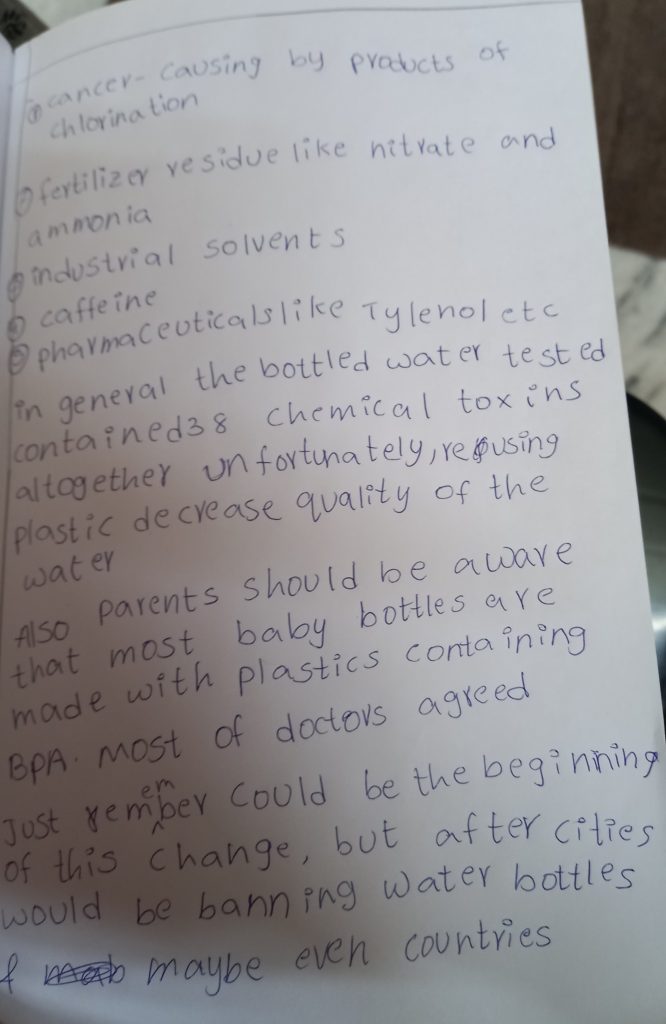 ① cancer- causing by products of
chlorination
② fertilizer residue like nitrate and
ammonia
③ industrial solvents
④ caffeine
⑤ pharmaceuticals like Tylenol etc
in general the bottled water tested
contained 38 chemical toxins
altogether unfortunately, reusing
plastic decrease quality of the
water
Also parents should be aware
that most baby bottles are
made with plastics containing
BPA. Most of doctors agreed
Just remember could be the beginning
of this change, but after cities
would be banning water bottles
& maybe even countries